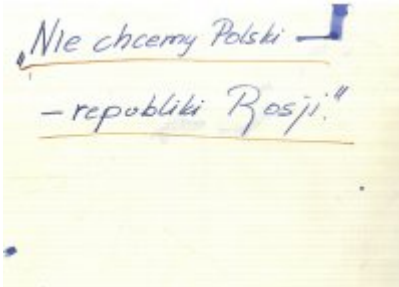 „Nie chcemy Polski –
– republiki Rosji."